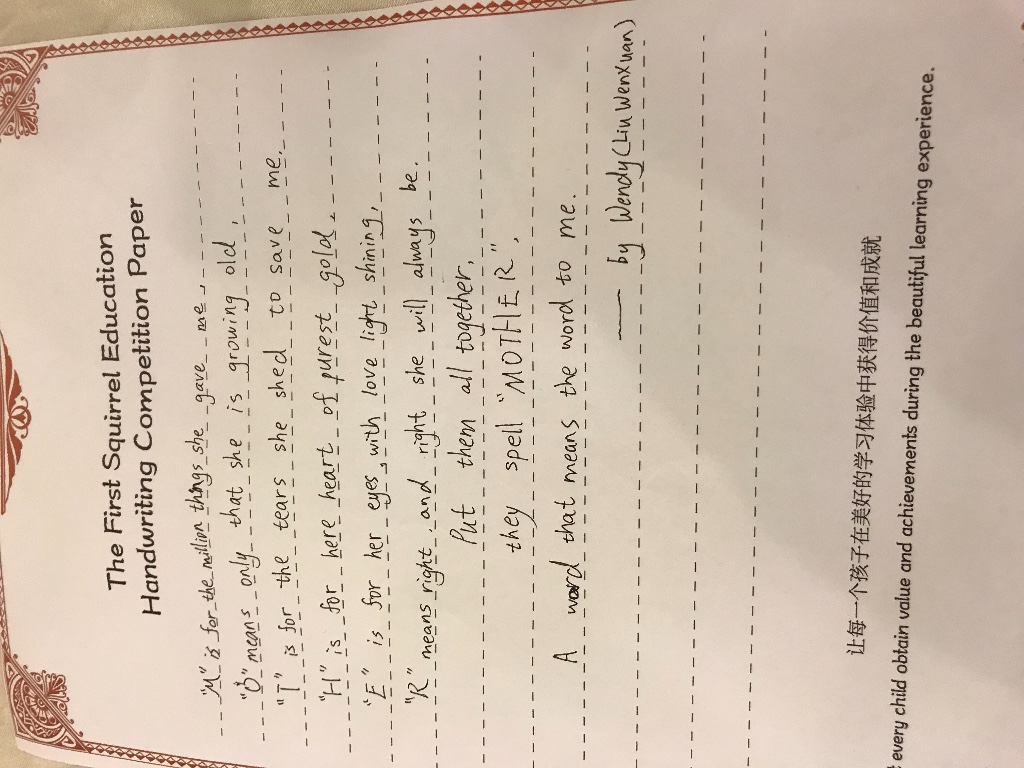 The First Squirrel Education
Handwriting Competition Paper
"M" is for the million things she gave me,
"O" means only that she is growing old,
"T" is for the tears she shed to save me.
"H" is for here heart of purest gold.
"E" is for her eyes, with love light shining,
"R" means right, and right she will always be.
Put them all together,
they spell "MOTHER",
A word that means the word to me.
—— by Wendy (Liu Wenxuan)
让每一个孩子在美好的学习体验中获得价值和成就
every child obtain value and achievements during the beautiful learning experience.